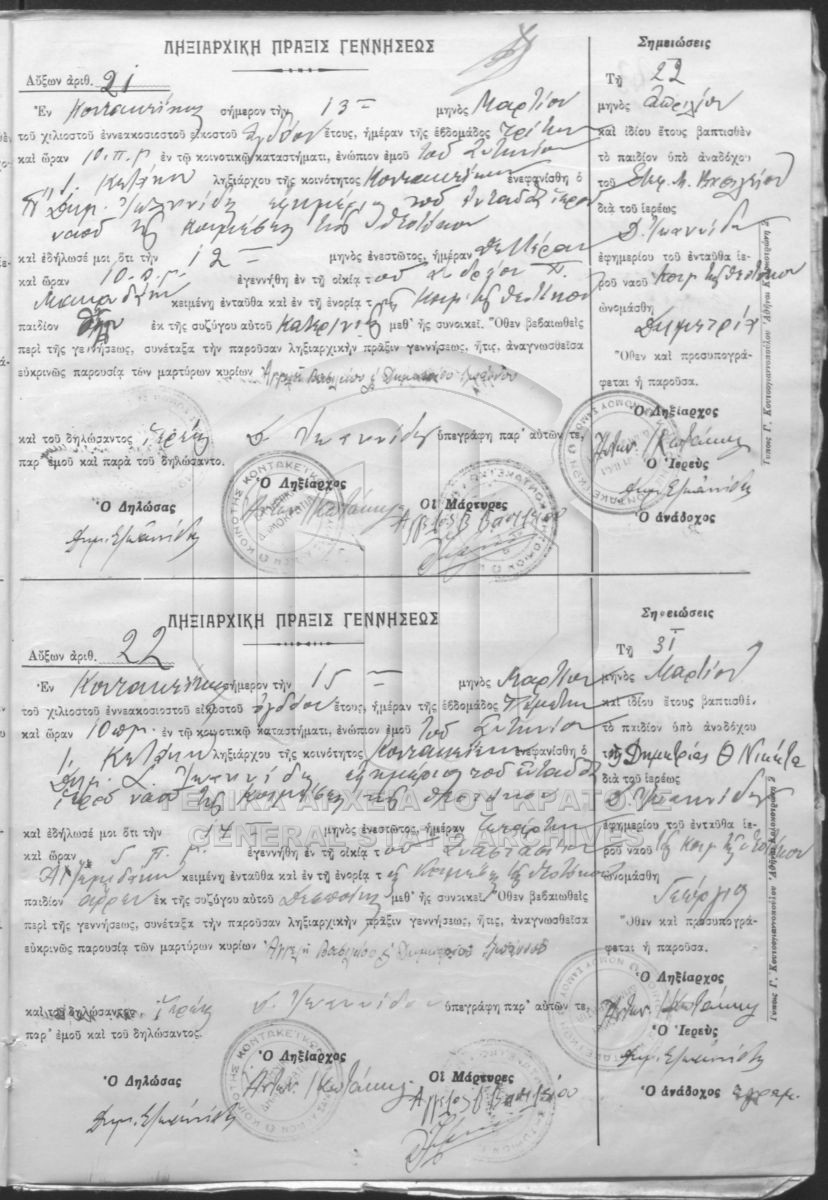 ΛΗΞΙΑΡΧΙΚΗ ΠΡΑΞΙΣ ΓΕΝΝΗΣΕΩΣ
Αὔξων ἀριθ. 21
Ἐν Κοντακεΐκοις σήμερον τὴν 13 μηνὸς Μαρτίου
τοῦ χιλιοστοῦ ἐννεακοσιοστοῦ εἰκοστοῦ ὀγδόου ἔτους, ἡμέραν τῆς ἑβδομάδος Τρίτην
καὶ ὥραν 10 π.μ. ἐν τῷ κοινοτικῷ καταστήματι, ἐνώπιον ἐμοῦ τοῦ Ἀντωνίου
Ι. Κωτάκη ληξιάρχου τῆς κοινότητος Κοντακεΐκων ἐνεφανίσθη ὁ
Δημ. Ἰωαννίδης ἐφημέριος τοῦ ἐνταῦθα ἱεροῦ
ναοῦ τῆς Κοιμήσεως τῆς Θεοτόκου
καὶ ἐδήλωσέ μοι ὅτι τὴν 12 μηνὸς ἐνεστῶτος, ἡμέραν Δευτέραν
καὶ ὥραν 10 ἐγεννήθη ἐν τῇ οἰκίᾳ τοῦ
κειμένη ἐνταῦθα καὶ ἐν τῇ ἐνορίᾳ τῆς Κοιμ. τῆς Θεοτόκου
παιδίον θῆλυ ἐκ τῆς συζύγου αὐτοῦ Κατερίνης μεθ' ἧς συνοικεῖ. Ὅθεν βεβαιωθεὶς
περὶ τῆς γεννήσεως, συνέταξα τὴν παροῦσαν ληξιαρχικὴν πρᾶξιν γεννήσεως, ἥτις, ἀναγνωσθεῖσα
εὐκρινῶς παρουσίᾳ τῶν μαρτύρων κυρίων Ἀγγελῆ Βασιλείου & Δημητρίου
καὶ τοῦ δηλώσαντος Ἱερέως Δ. Ἰωαννίδου ὑπεγράφη παρ' αὐτῶν τε,
παρ' ἐμοῦ καὶ παρὰ τοῦ δηλώσαντο.
Ὁ Ληξίαρχος
Ὁ Δηλώσας Ἀντων. Ι Κωτάκης Οἱ Μάρτυρες
Δημ. Σ. Ἰωαννίδης Ἀγγελὸς Β Βασιλείου
Σημειώσεις
Τῇ 22
μηνὸς Ἀπριλίου
καὶ ἰδίου ἔτους βαπτισθὲν
τὸ παιδίον ὑπὸ ἀναδόχου
τοῦ
διὰ τοῦ ἱερέως
Δ. Ἰωαννίδη
ἐφημερίου τοῦ ἐνταῦθα ἱε-
ροῦ ναοῦ Κοιμ. τῆς Θεοτόκου
ὠνομάσθη
Δημητρία
Ὅθεν καὶ προσυπογρά-
φεται ἡ παροῦσα.
Ὁ Ληξίαρχος
Ἀντων. Ι Κωτάκης
Ὁ Ἱερεὺς
Δημ. Σ. Ἰωαννίδης
Ὁ ἀνάδοχος
Τύποις Γ. Κοντογιαννοπούλου Ἀθῆναι
ΛΗΞΙΑΡΧΙΚΗ ΠΡΑΞΙΣ ΓΕΝΝΗΣΕΩΣ
Αὔξων ἀριθ. 22
Ἐν Κοντακεΐκοις σήμερον τὴν 15 μηνὸς Μαρτίου
τοῦ χιλιοστοῦ ἐννεακοσιοστοῦ εἰκοστοῦ ὀγδόου ἔτους, ἡμέραν τῆς ἑβδομάδος Πέμπτην
καὶ ὥραν 10 π.μ. ἐν τῷ κοινοτικῷ καταστήματι, ἐνώπιον ἐμοῦ τοῦ Ἀντωνίου
Ι. Κωτάκη ληξιάρχου τῆς κοινότητος Κοντακεΐκων ἐνεφανίσθη ὁ
Δημ. Σ. Ἰωαννίδης ἐφημέριος τοῦ ἐνταῦθα
ἱεροῦ ναοῦ τῆς Κοιμήσεως τῆς Θεοτόκου
ΓΕΝΙΚΑ ΑΡΧΕΙΑ ΤΟΥ ΚΡΑΤΟΥΣ
GENERAL STATE ARCHIVES
καὶ ἐδήλωσέ μοι ὅτι τὴν 14 μηνὸς ἐνεστῶτος, ἡμέραν Τετάρτην
καὶ ὥραν 5 π.μ. ἐγεννήθη ἐν τῇ οἰκίᾳ τοῦ Ἀναστασίου
κειμένη ἐνταῦθα καὶ ἐν τῇ ἐνορίᾳ τῆς Κοιμήσεως τῆς Θεοτόκου
παιδίον ἄρρεν ἐκ τῆς συζύγου αὐτοῦ Δεσποίνης μεθ' ἧς συνοικεῖ. Ὅθεν βεβαιωθεὶς
περὶ τῆς γεννήσεως, συνέταξα τὴν παροῦσαν ληξιαρχικὴν πρᾶξιν γεννήσεως, ἥτις, ἀναγνωσθεῖσα
εὐκρινῶς παρουσίᾳ τῶν μαρτύρων κυρίων Ἀγγελῆ Βασιλείου & Δημητρίου
καὶ τοῦ δηλώσαντος, Ἱερέως Δ. Ἰωαννίδου ὑπεγράφη παρ' αὐτῶν τε,
παρ' ἐμοῦ καὶ τοῦ δηλώσαντος.
Ὁ Ληξίαρχος
Ὁ Δηλώσας Ἀντων. Ι Κωτάκης Οἱ Μάρτυρες
Δημ. Σ. Ἰωαννίδης Ἀγγελὸς Β Βασιλείου
Σημειώσεις
Τῇ 31
μηνὸς Μαρτίου
καὶ ἰδίου ἔτους βαπτισθὲν
τὸ παιδίον ὑπὸ ἀναδόχου
τῆς Δημητρίας Θ Νικήτα
διὰ τοῦ ἱερέως
Δ. Ἰωαννίδη
ἐφημερίου τοῦ ἐνταῦθα ἱε-
ροῦ ναοῦ τῆς Κοιμ. τῆς Θεοτόκου
ὠνομάσθη
Γεώργιος
Ὅθεν καὶ προσυπογρά-
φεται ἡ παροῦσα.
Ὁ Ληξίαρχος
Ἀντων. Ι Κωτάκης
Ὁ Ἱερεὺς
Δημ. Σ. Ἰωαννίδης
Ὁ ἀνάδοχος ἀγράμ.
Τύποις Γ. Κοντογιαννοπούλου Ἀθῆναι